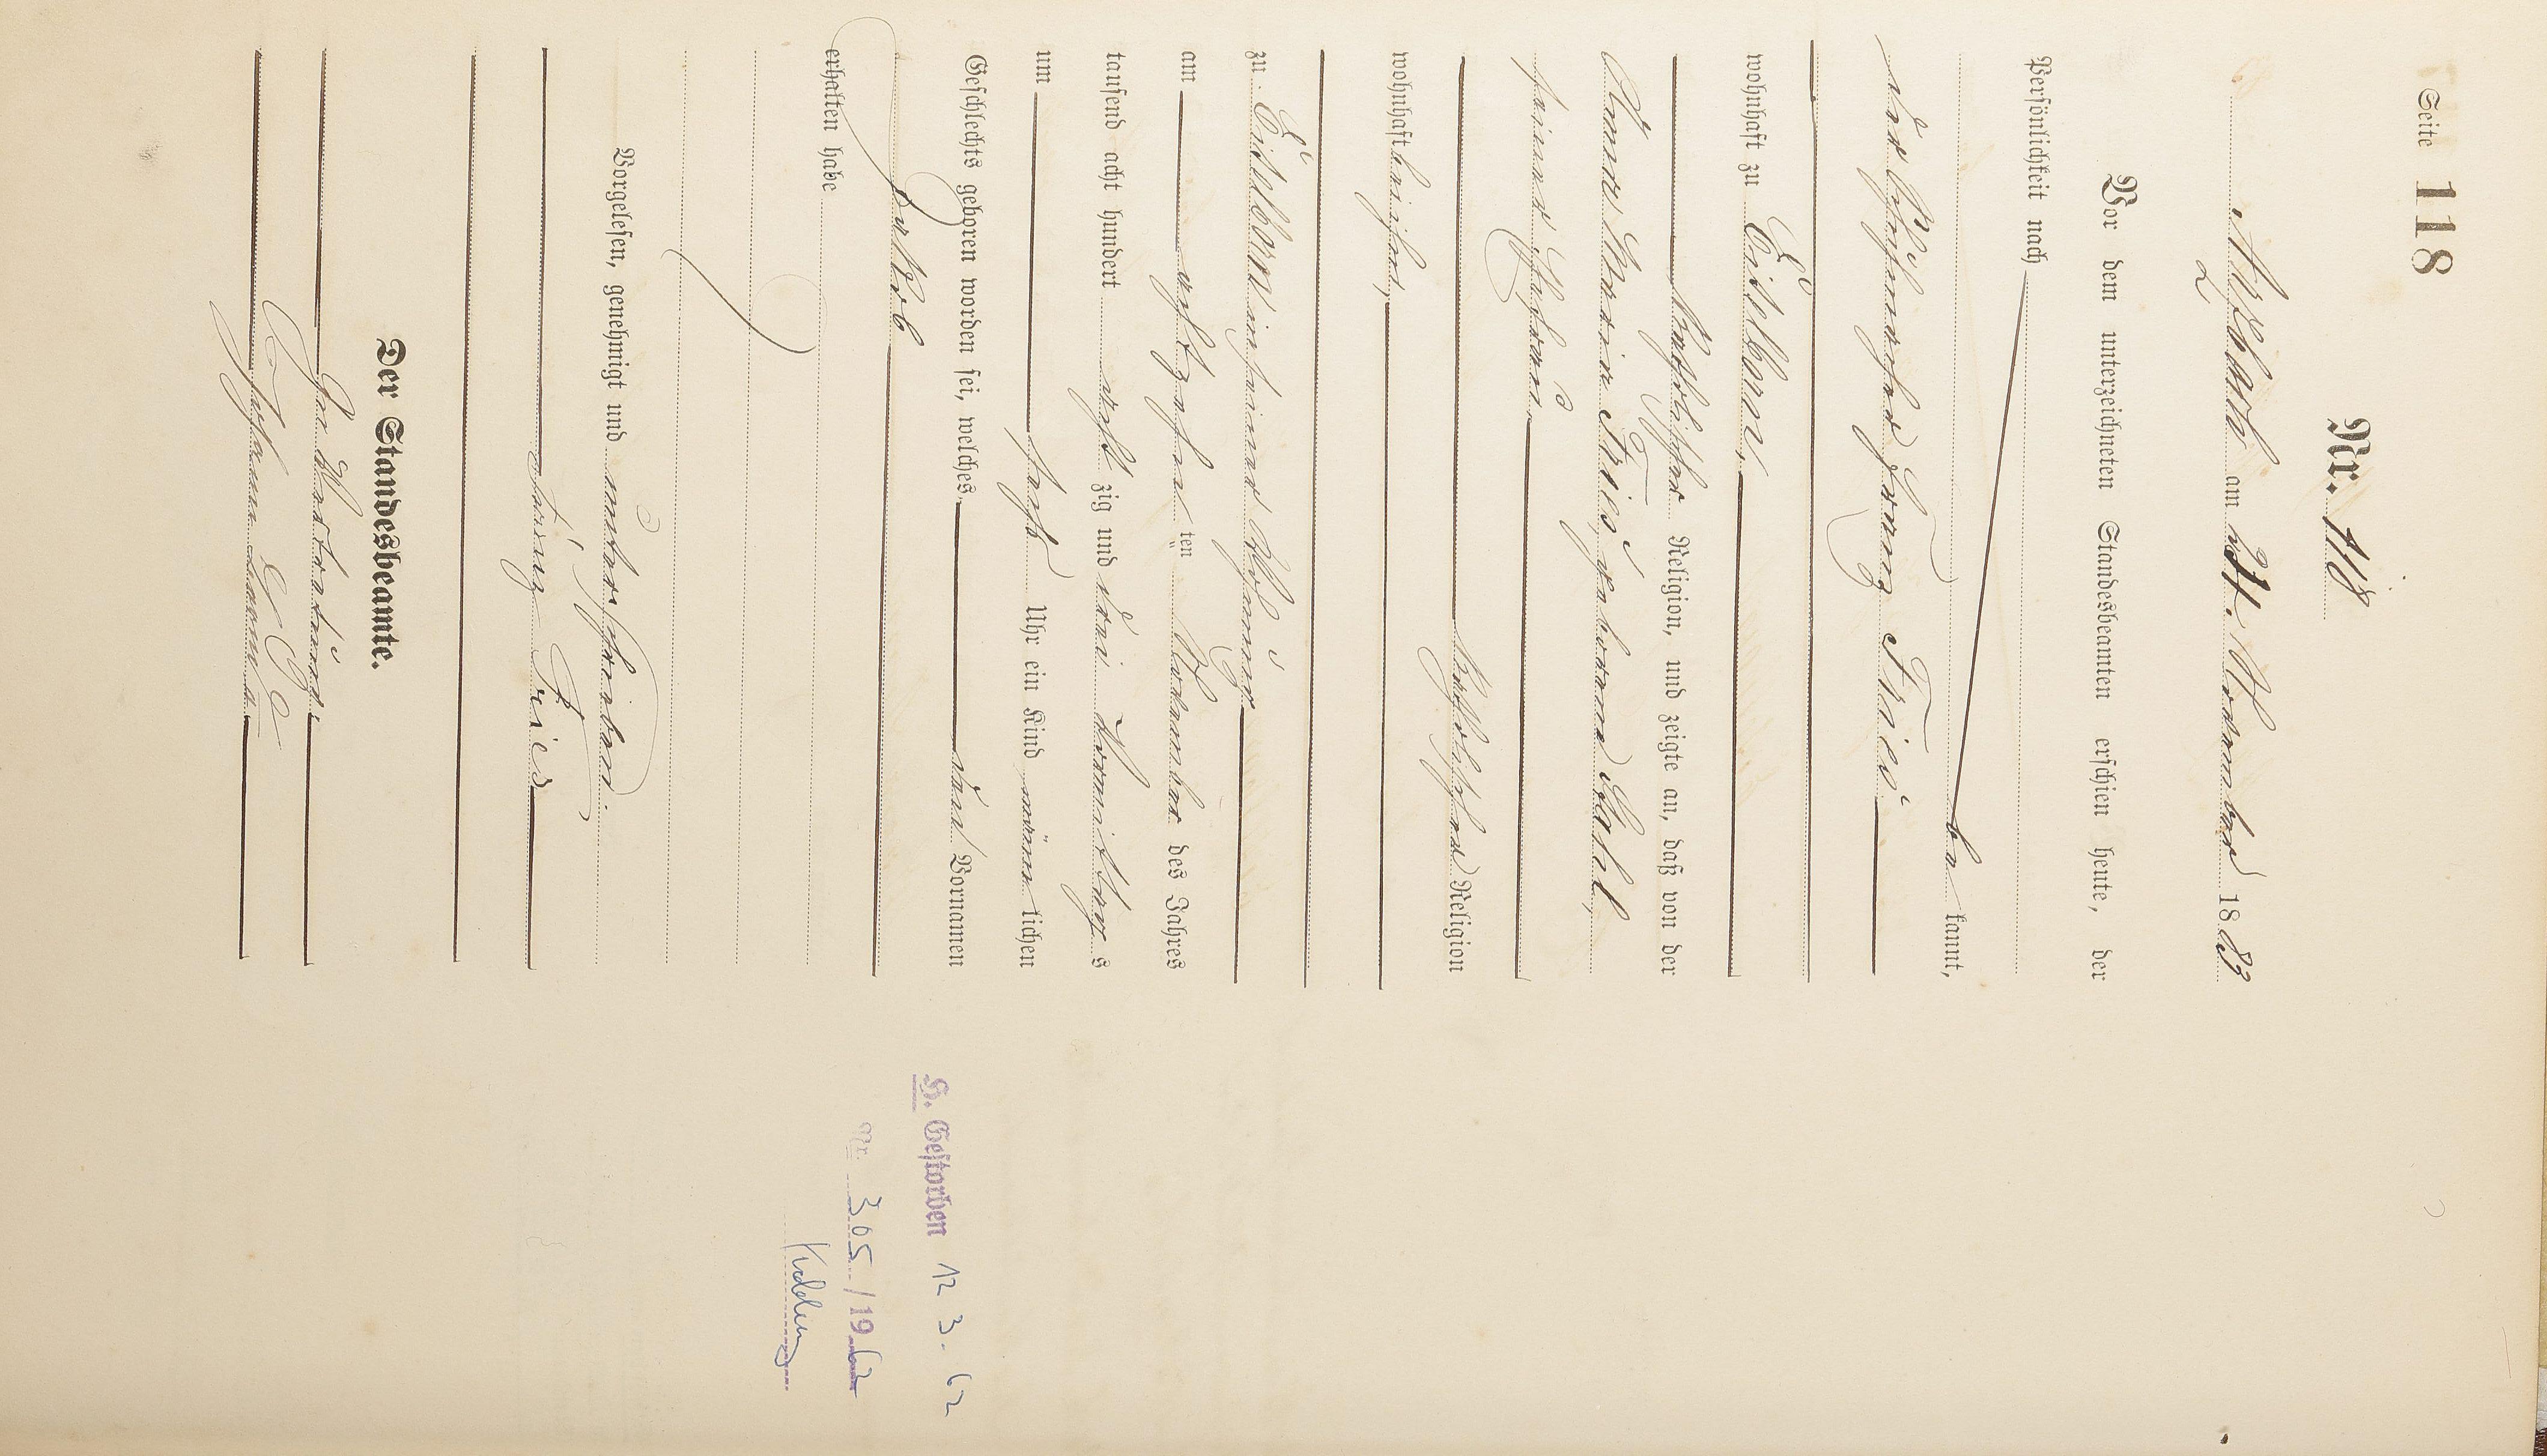 Seite 118
Nr. 118
am 24. November 1883
Vor dem unterzeichneten Standesbeamten erschien heute, der
Persönlichkeit nach
be kannt,
der Franz Fries
wohnhaft zu Eitelborn,
katholischer Religion, und zeigte an, daß von der
Anna Maria Fries, geborene
seiner Ehefrau
katholischer Religion
wohnhaft bei ihm,
zu Eitelborn in seiner Wohnung
am achtzehn ten November des Jahres
tausend acht hundert acht zig und drei Vormittags
um sechs Uhr ein Kind männlichen
Geschlechts geboren worden sei, welches den Vornamen
Jakob
erhalten habe
Vorgelesen, genehmigt und unterschrieben.
Franz Fries
Der Standesbeamte.
H. Gestorben 12 3. 62
Nr. 305/1962